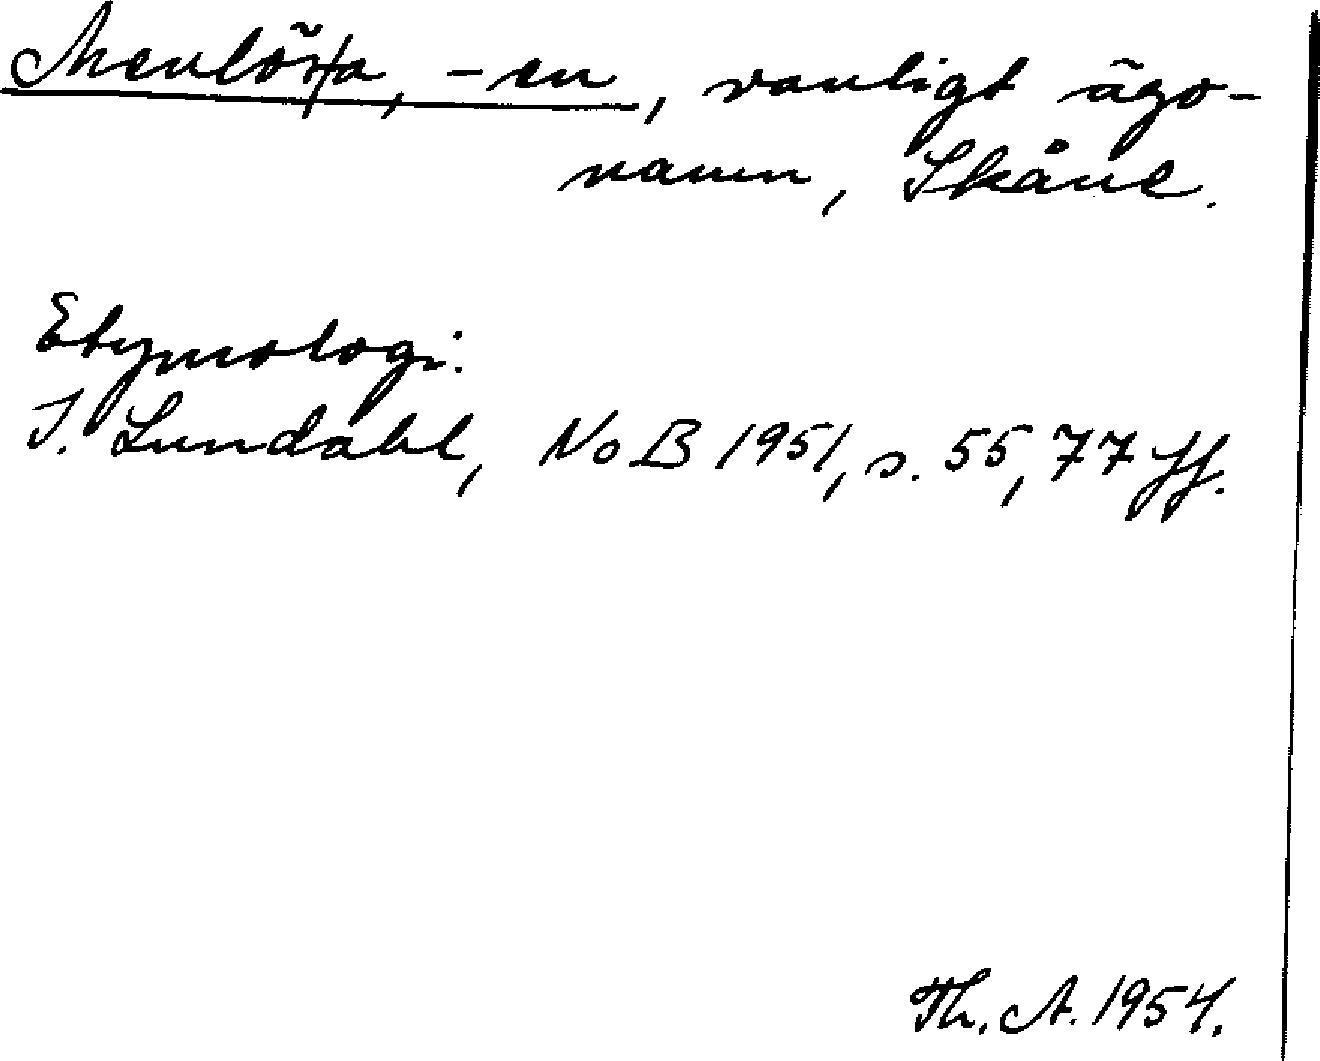 Menlösa, -en, vanligt ägo-
namn, Skåne.
Etymologi.
I. Lundahl, NoB 1951, s. 55, 77 ff.
Th. A. 1954.